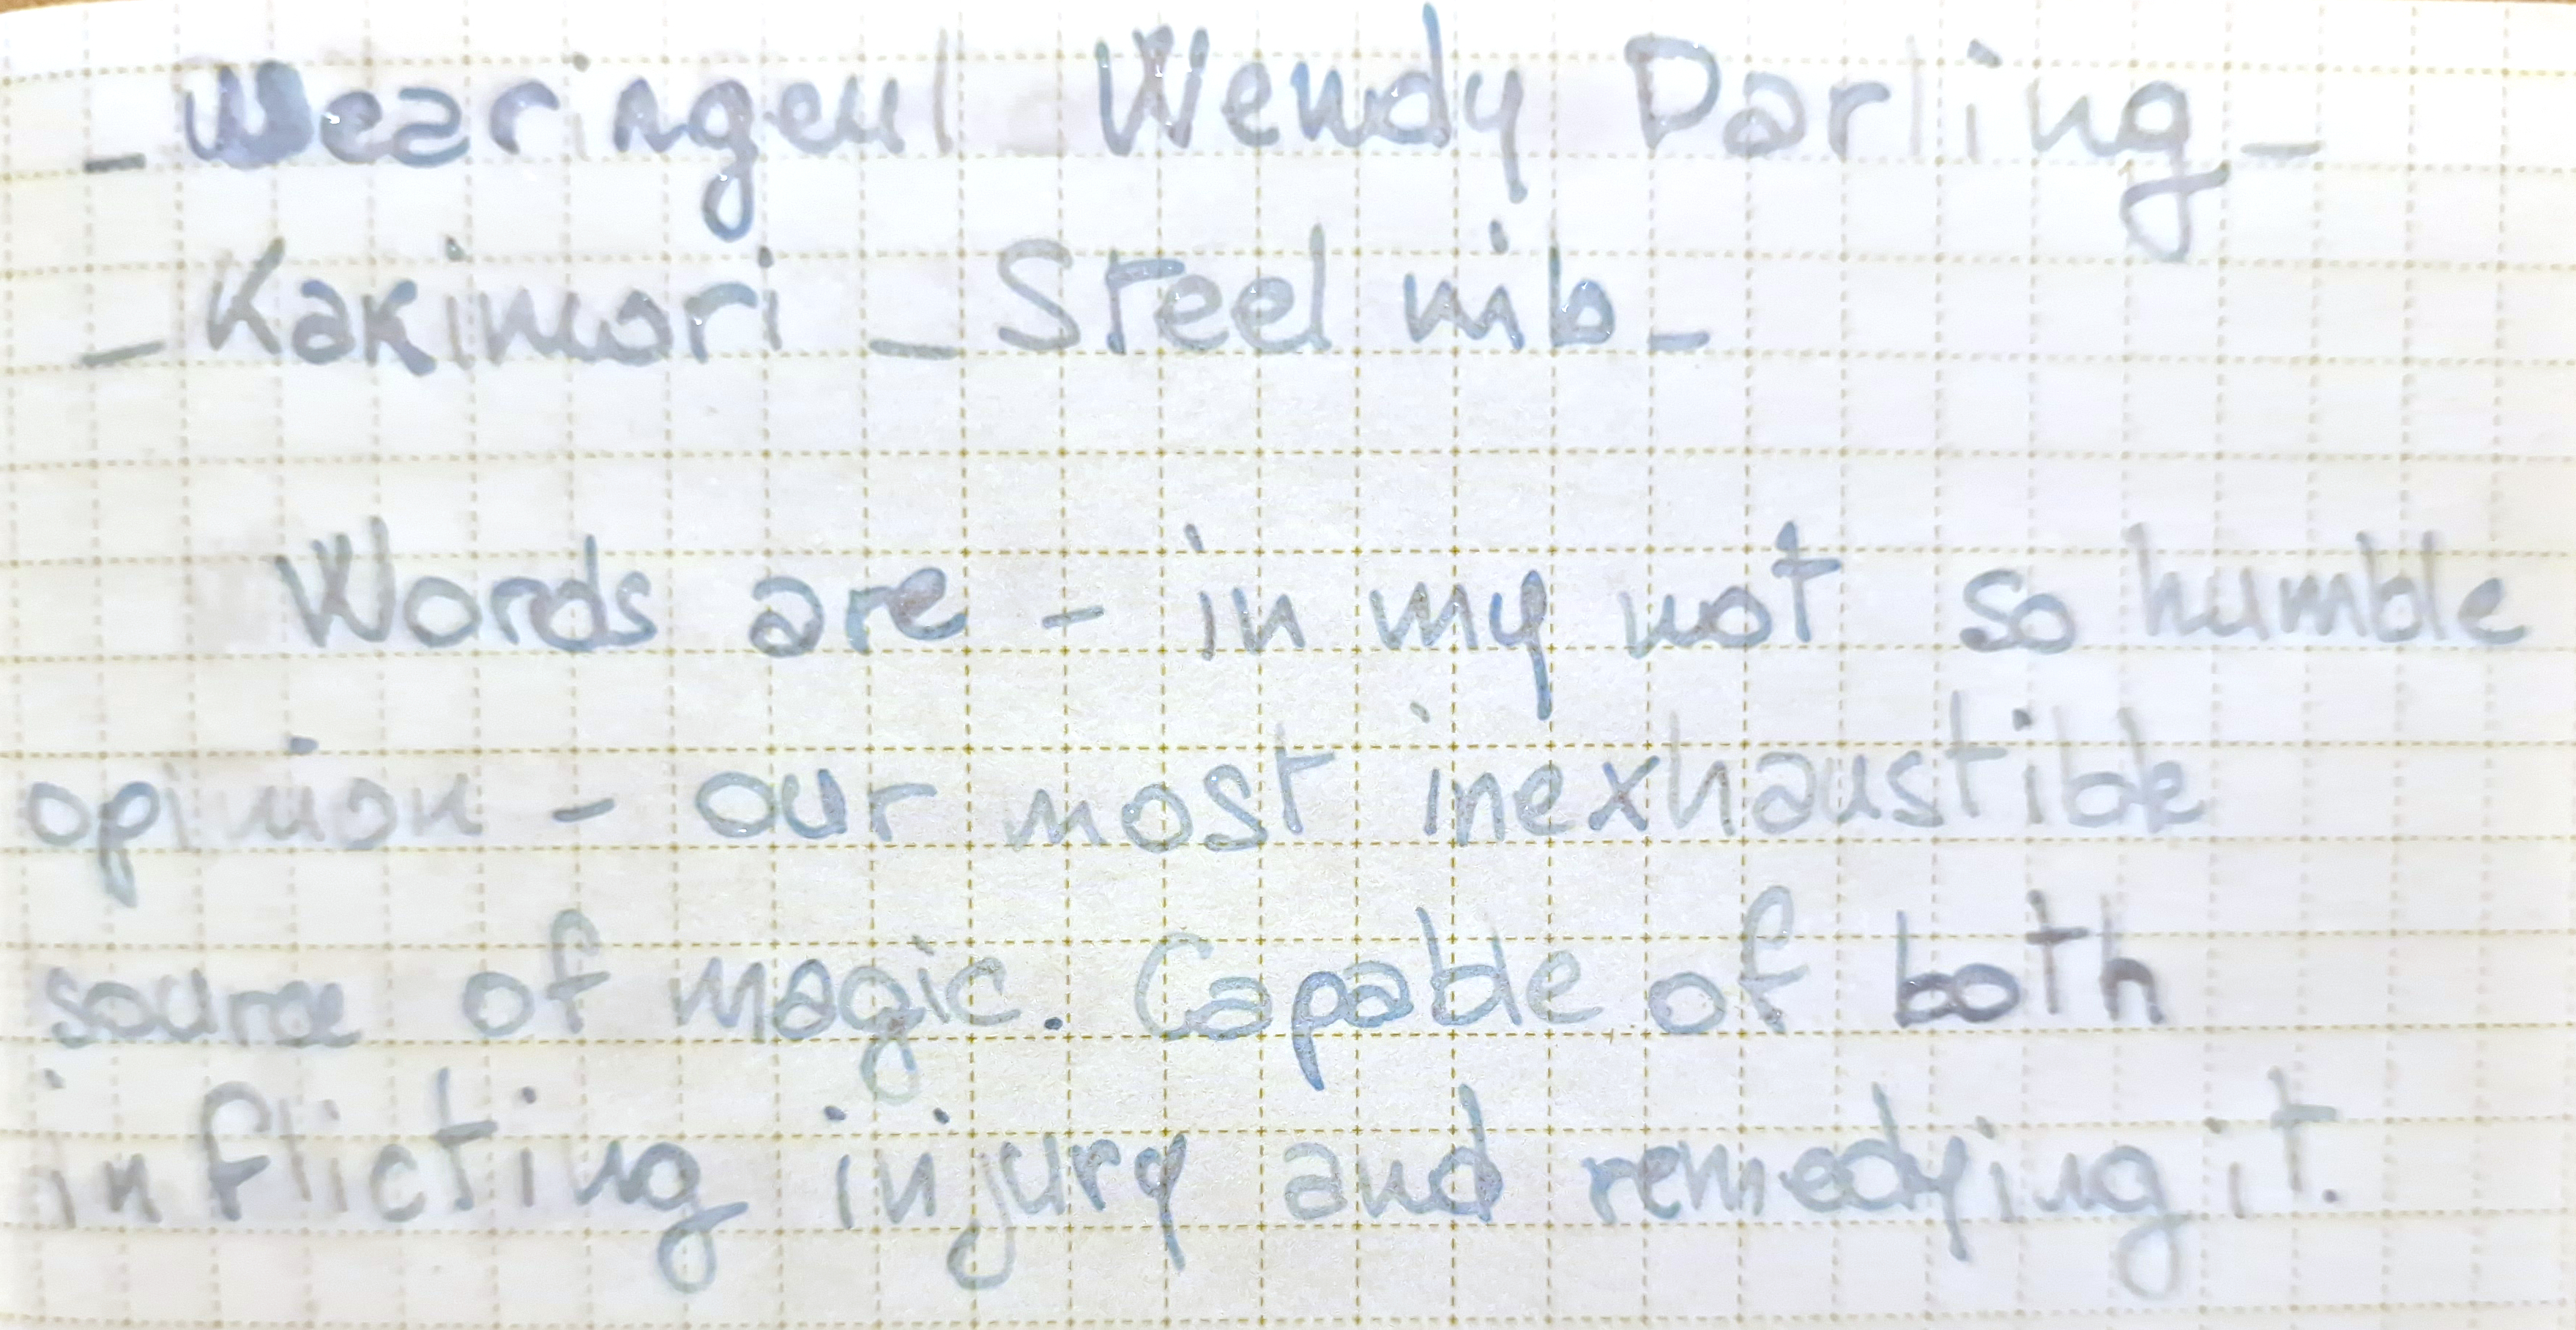 - Wearingeul Wendy Darling -
- Kakimori - Steel nib -
Words are - in my not so humble
opinion - our most inexhaustible
source of magic. Capable of both
inflicting injury and remedying it.